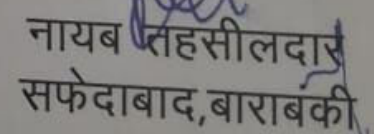 नायब तहसीलदार
सफेदाबाद,बाराबंकी